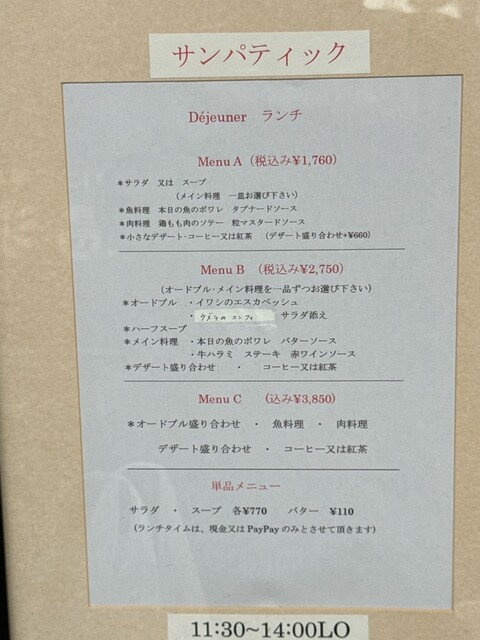 サンパティック
Déjeuner ランチ
Menu A（税込み¥1,760）
＊サラダ 又は スープ
（メイン料理 一皿お選び下さい）
＊魚料理 本日の魚のポワレ タプナードソース
＊肉料理 鶏もも肉のソテー 粒マスタードソース
＊小さなデザート･コーヒー又は紅茶 （デザート盛り合わせ+¥660）
Menu B （税込み¥2,750）
（オードブル･メイン料理を一品ずつお選び下さい）
＊オードブル ・イワシのエスカベッシュ
・ のコンフィ サラダ添え
＊ハーフスープ
＊メイン料理 ・本日の魚のポワレ バターソース
・牛ハラミ ステーキ 赤ワインソース
＊デザート盛り合わせ ・ コーヒー又は紅茶
Menu C （込み¥3,850）
＊オードブル盛り合わせ ・ 魚料理 ・ 肉料理
デザート盛り合わせ ・ コーヒー又は紅茶
単品メニュー
サラダ ・ スープ 各¥770 バター ¥110
（ランチタイムは、現金又は PayPay のみとさせて頂きます）
11:30~14:00LO